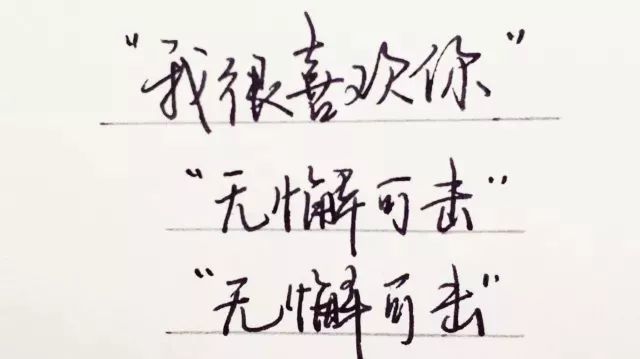 “我很喜欢你”
“无懈可击”
“无懈可击”